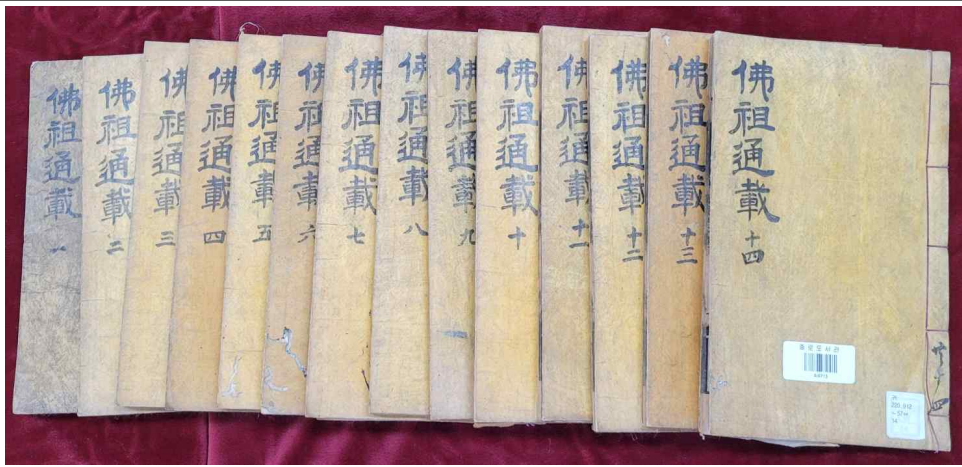 佛祖通載 一
佛祖通載 二
佛祖通載 三
佛祖通載 四
佛祖通載 五
佛祖通載 六
佛祖通載 七
佛祖通載 八
佛祖通載 九
佛祖通載 十
佛祖通載 十一
佛祖通載 十二
佛祖通載 十三
佛祖通載 十四
종로도서관
共十四